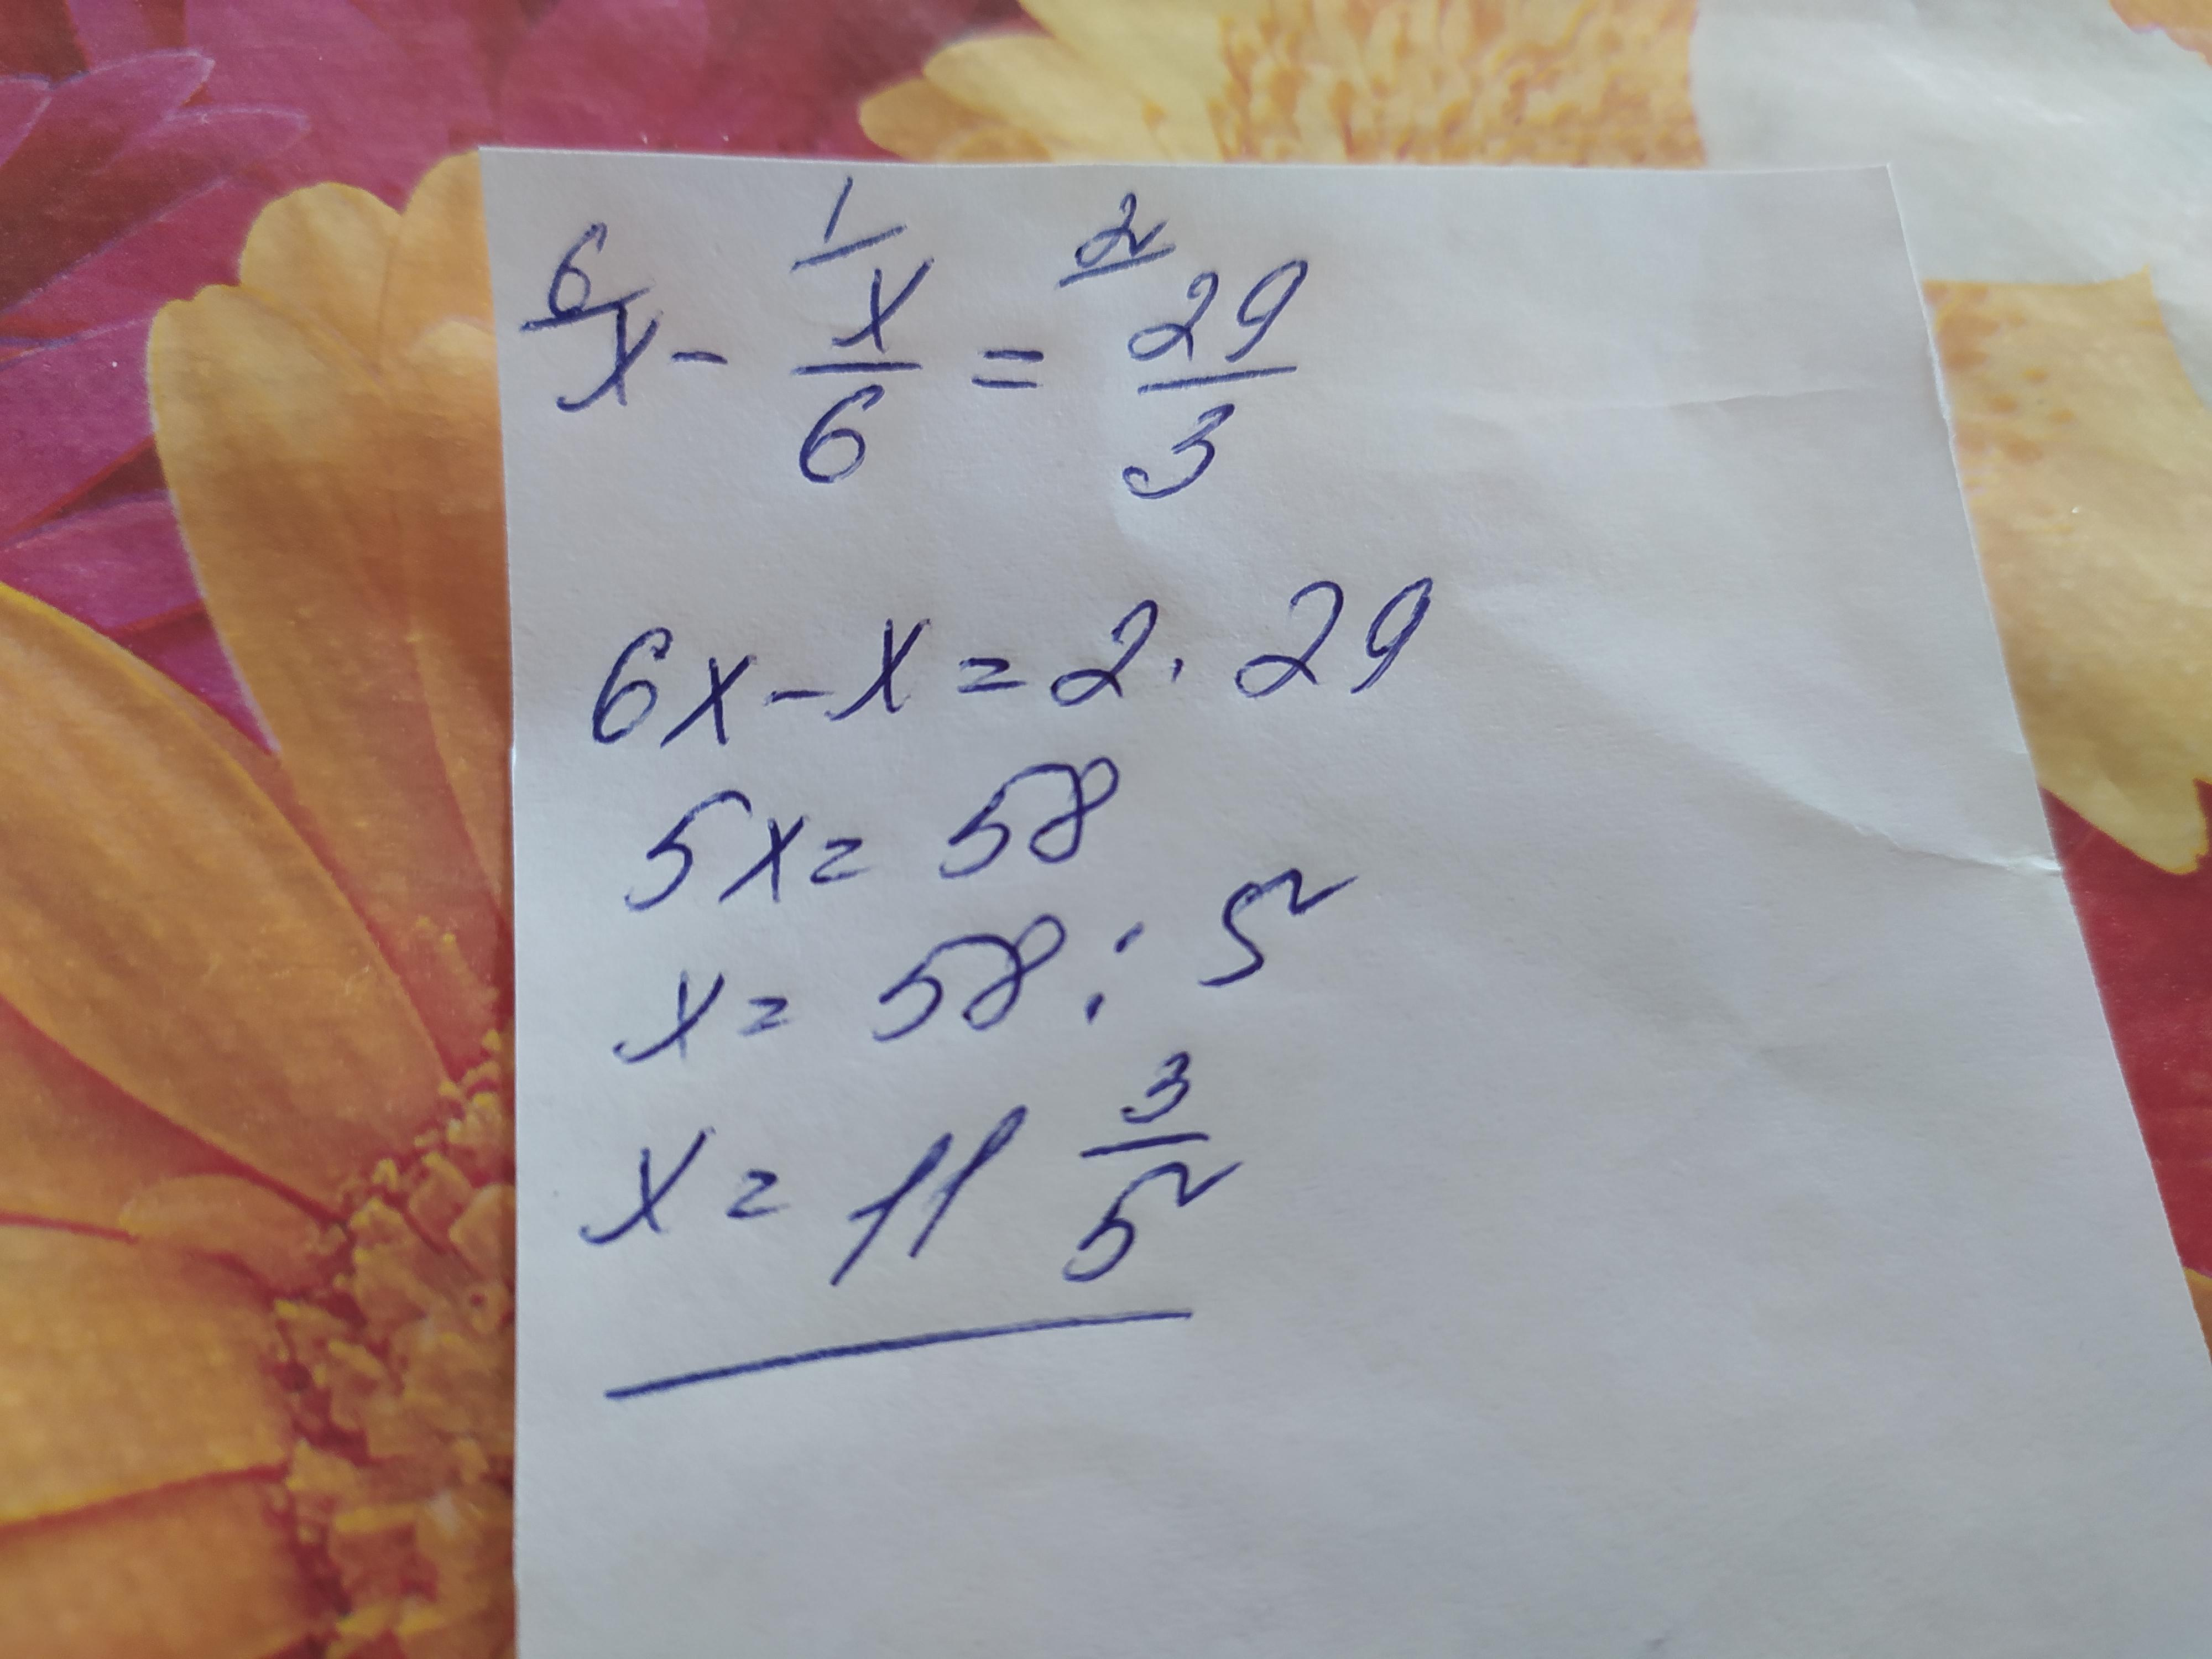 6/x - 1/x/6 = 2/29/3
6x - x = 2 · 29
5x = 58
x = 58 : 5
x = 11 3/5